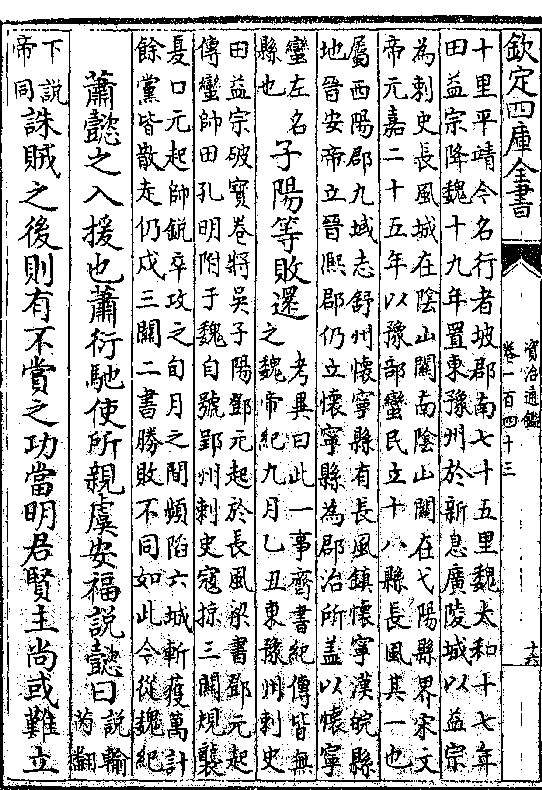 欽定四庫全書
資治通鑑
卷一百四十三
十六
十里平靖今名行者坡郡南七十五里魏太和十七年
田益宗降魏十九年置東豫州於新息廣陵城以益宗
為刺史長風城在陰山關南陰山關在弋陽縣界宋文
帝元嘉二十五年以豫部蠻民立十八縣長風其一也
屬西陽郡九域志舒州懷寧縣有長風鎮懷寧漢皖縣
地晉安帝立晉熈郡仍立懷寧縣為郡治所蓋以懷寧
蠻左名
縣也
子陽等敗還
考異曰此一事齊書紀傳皆無
之魏帝紀九月乙丑東豫州刺史
田益宗破寶卷將吳子陽鄧元起於長風梁書鄧元起
傳蠻帥田孔明附于魏自號郢州刺史寇掠三關規襲
夏口元起帥銳卒攻之旬月之間頻陷六城斬獲萬計
餘黨皆散走仍戍三關二書勝敗不同如此今從魏紀
蕭懿之入援也蕭衍馳使所親虞安福説懿曰
説輸
芮翻
下説
帝同
誅賊之後則有不賞之功當明君賢主尚或難立